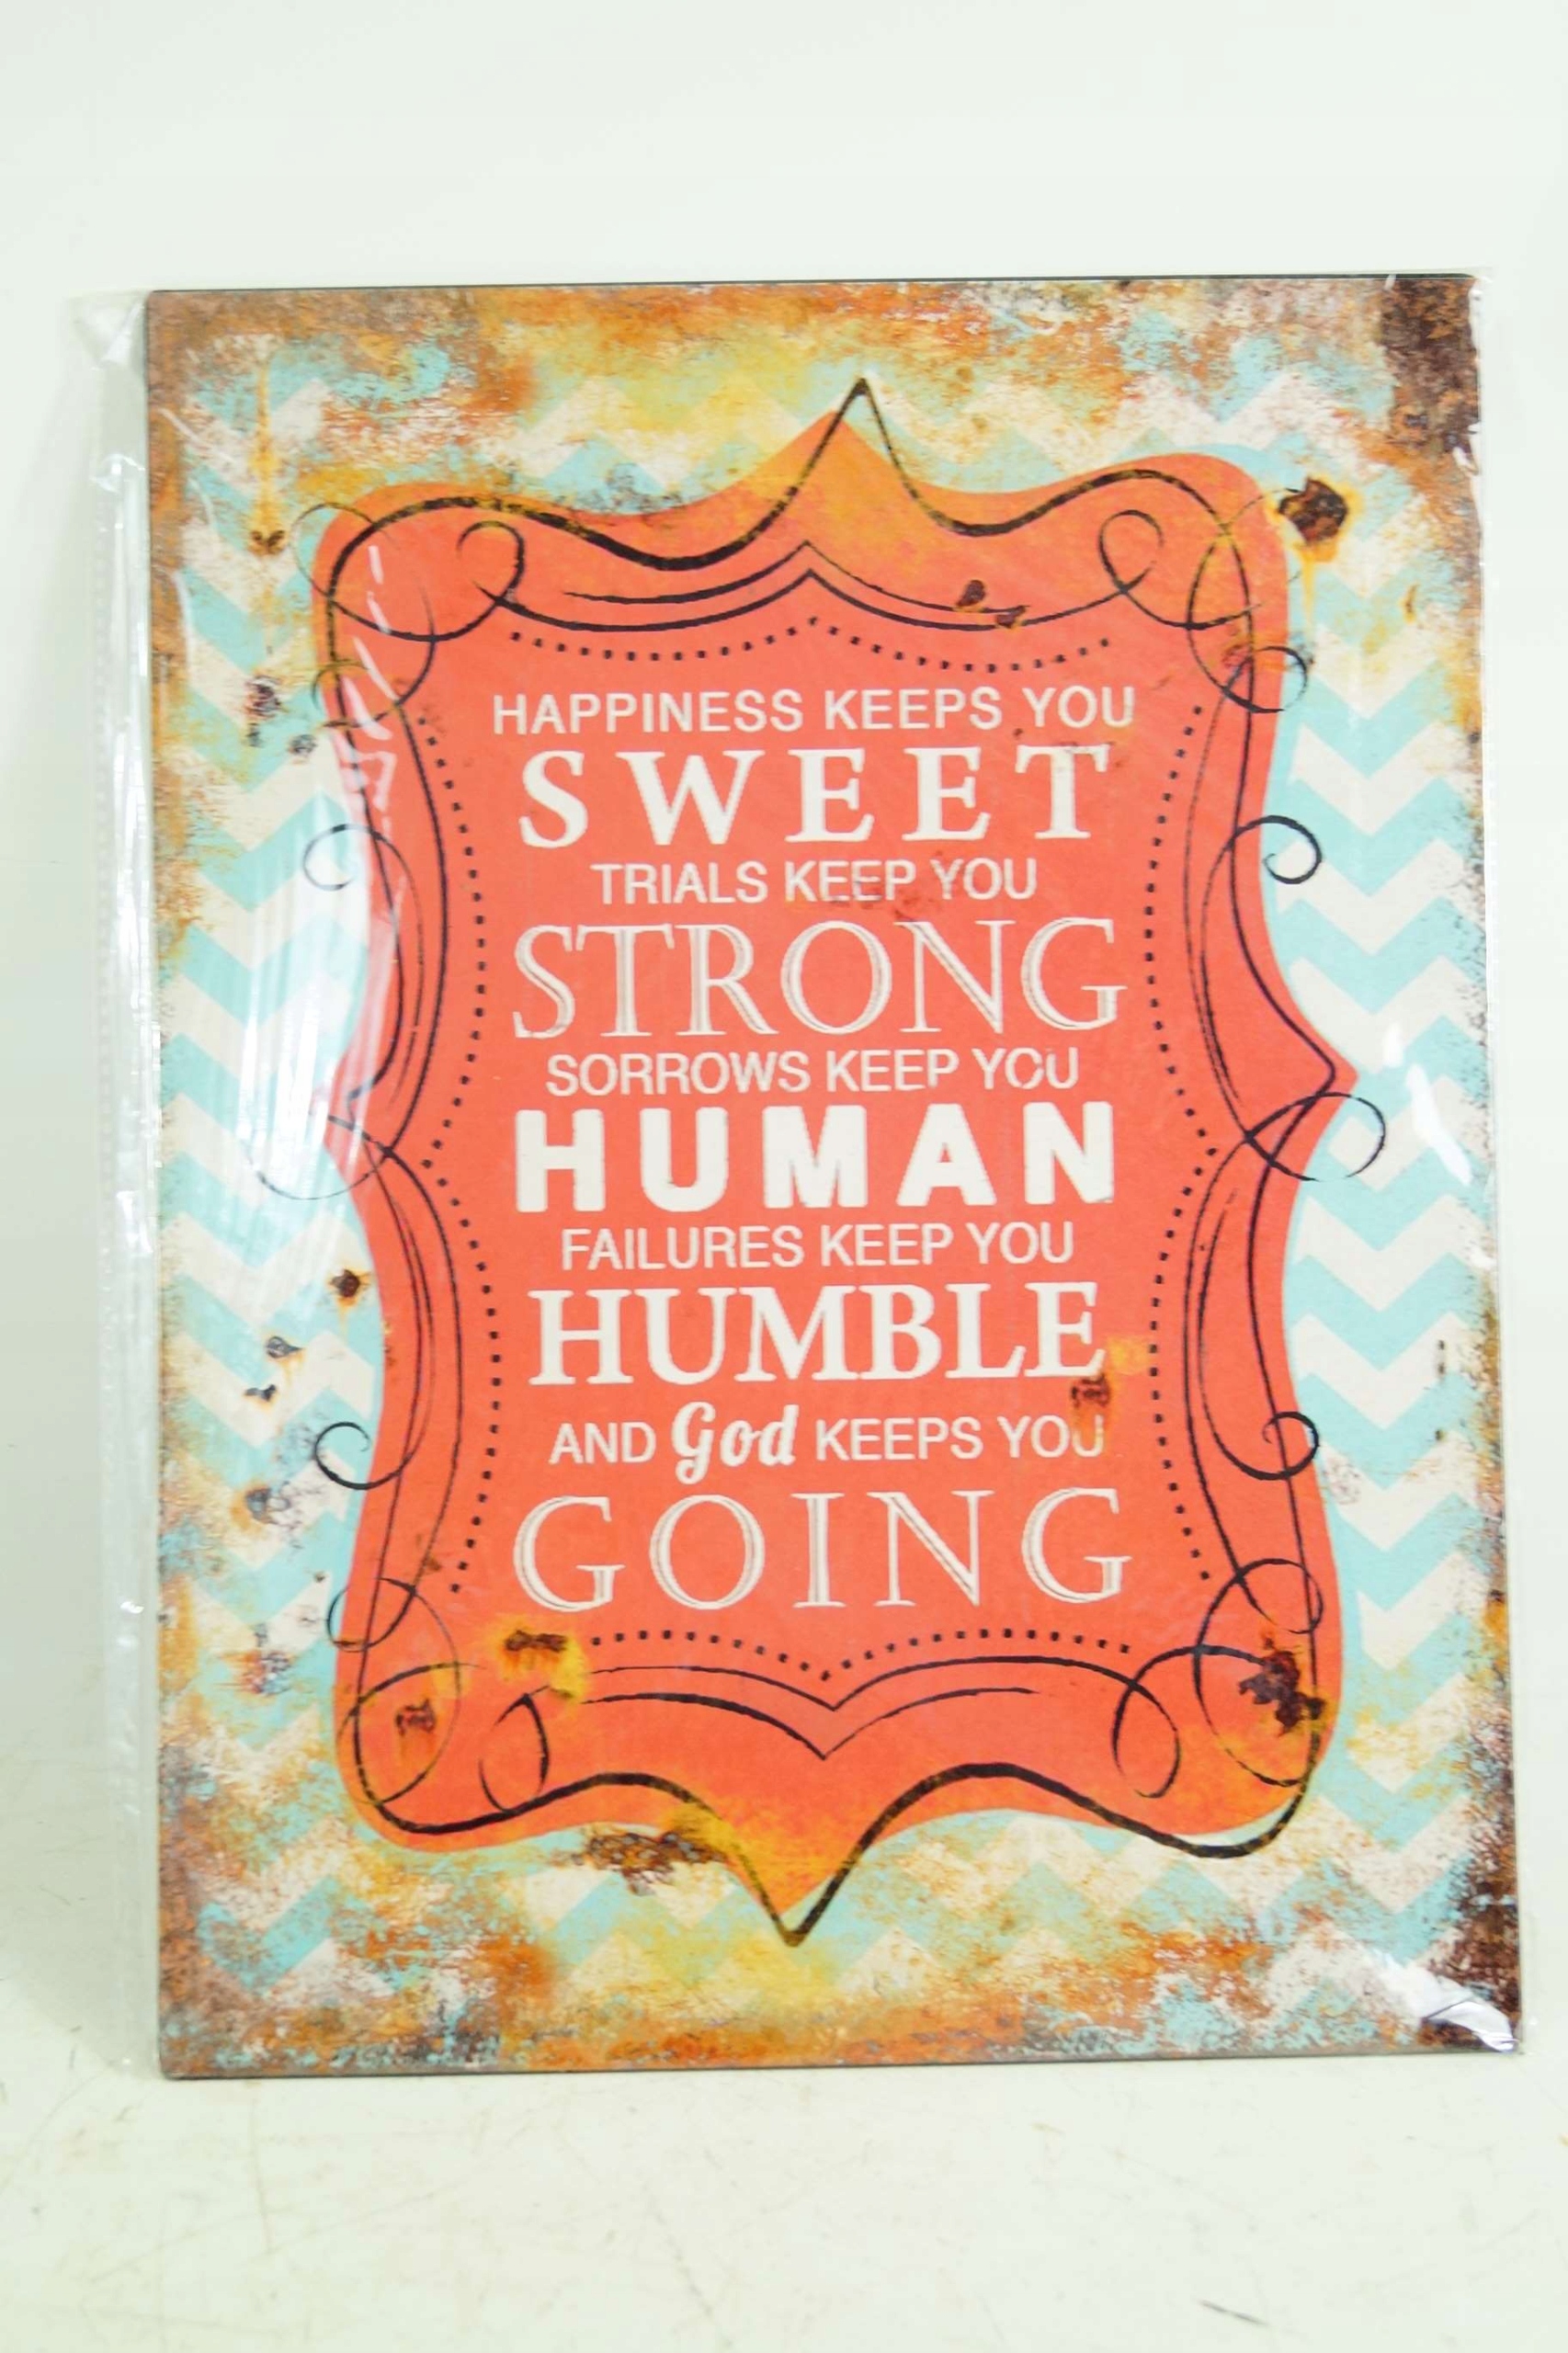 HAPPINESS KEEPS YOU
SWEET
TRIALS KEEP YOU
STRONG
SORROWS KEEP YOU
HUMAN
FAILURES KEEP YOU
HUMBLE
AND God KEEPS YOU
GOING